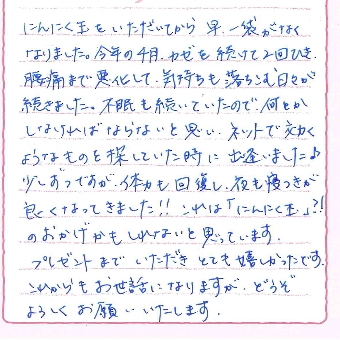 にんにく玉をいただいてから早、一袋がなく
なりました。今年の4月、カゼを続けて2回ひき、
腰痛まで悪化して、気持ちも落ちこむ日々が
続きました。不眠も続いていたので、何とか
しなければならないと思い、ネットで効く
ようなものを探していた時に出逢いました♪
少しずつですが、体力も回復し、夜も寝つきが
良くなってきました!! これは「にんにく玉」?!
のおかげかもしれないと思っています。
プレゼントまでいただきとても嬉しかったです。
これからもお世話になりますが、どうぞ
よろしくお願いいたします。